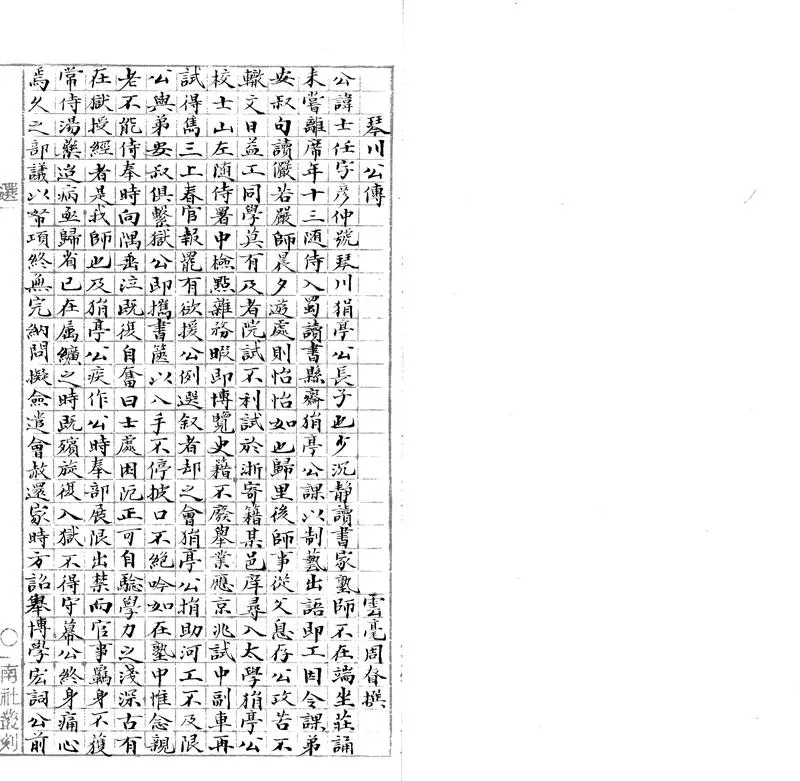 琴川公傳
雲亳周春撰
公諱士任字彥仲號琴川狷亭公長子也少沉静讀書家塾師不在端坐莊誦
未嘗離席年十三随侍入蜀讀書縣齋狷亭公課以制藝出語即工因令課弟
安叔句讀儼若嚴師晨夕遊處則怡怡如也歸里後師事從父息存公政苦不
輟文日益工同學莫有及者院試不利試於浙寄籍某邑庠尋入太學狷亭公
校士山左随侍署中檢點雜務暇即博覽史籍不廢舉業應京兆試中副車再
試得雋三上春官報罷有欲援公例選叙者却之會狷亭公捐助河工不及限
公與弟安叔俱繫獄公即攜書篋以入手不停披口不絕吟如在塾中惟念親
老不能侍奉時向隅垂泣既復自奮曰士處困阨正可自驗學力之淺深古有
在獄授經者是我師也及狷亭公疾作公時奉部展限出禁而官事羈身不獲
常侍湯藥迨病亟歸省已在属纊之時既殯旋復入獄不得守幕公終身痛心
焉久之部議以帑項終無完納問擬僉遣會赦還家時方詔舉博學宏詞公前
選
〇
南社叢刻